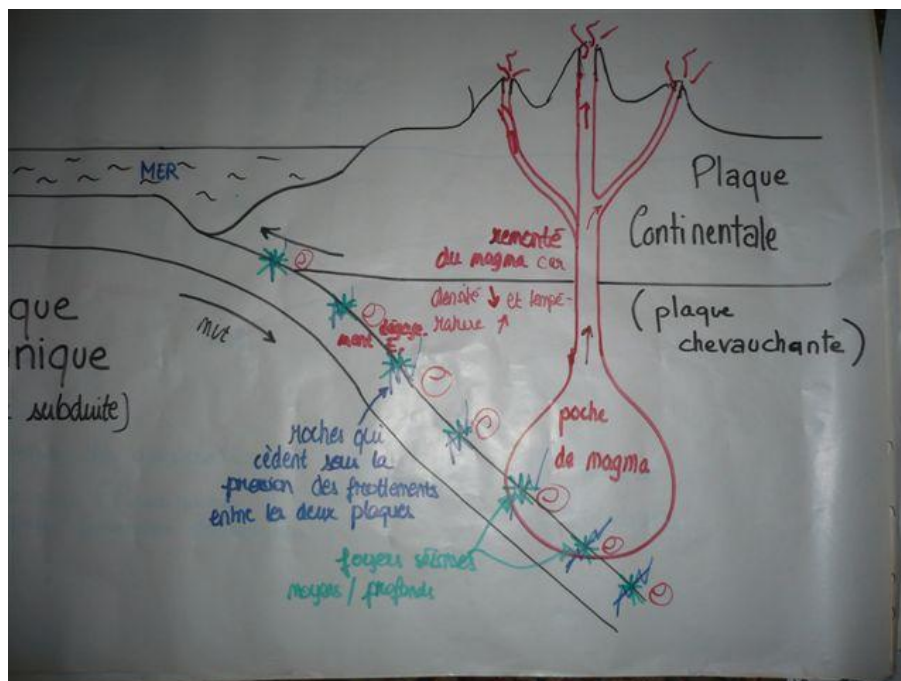 MER
Plaque
Continentale
(plaque
chevauchante)
remonté
du magma car
densité ↓ et tempé-
rature ↑
dégage-
ment E
que
nique
subduite)
mvt
roches qui
cèdent sous la
pression des frottements
entre les deux plaques
poche
de magma
foyers séismes
moyens / profonds